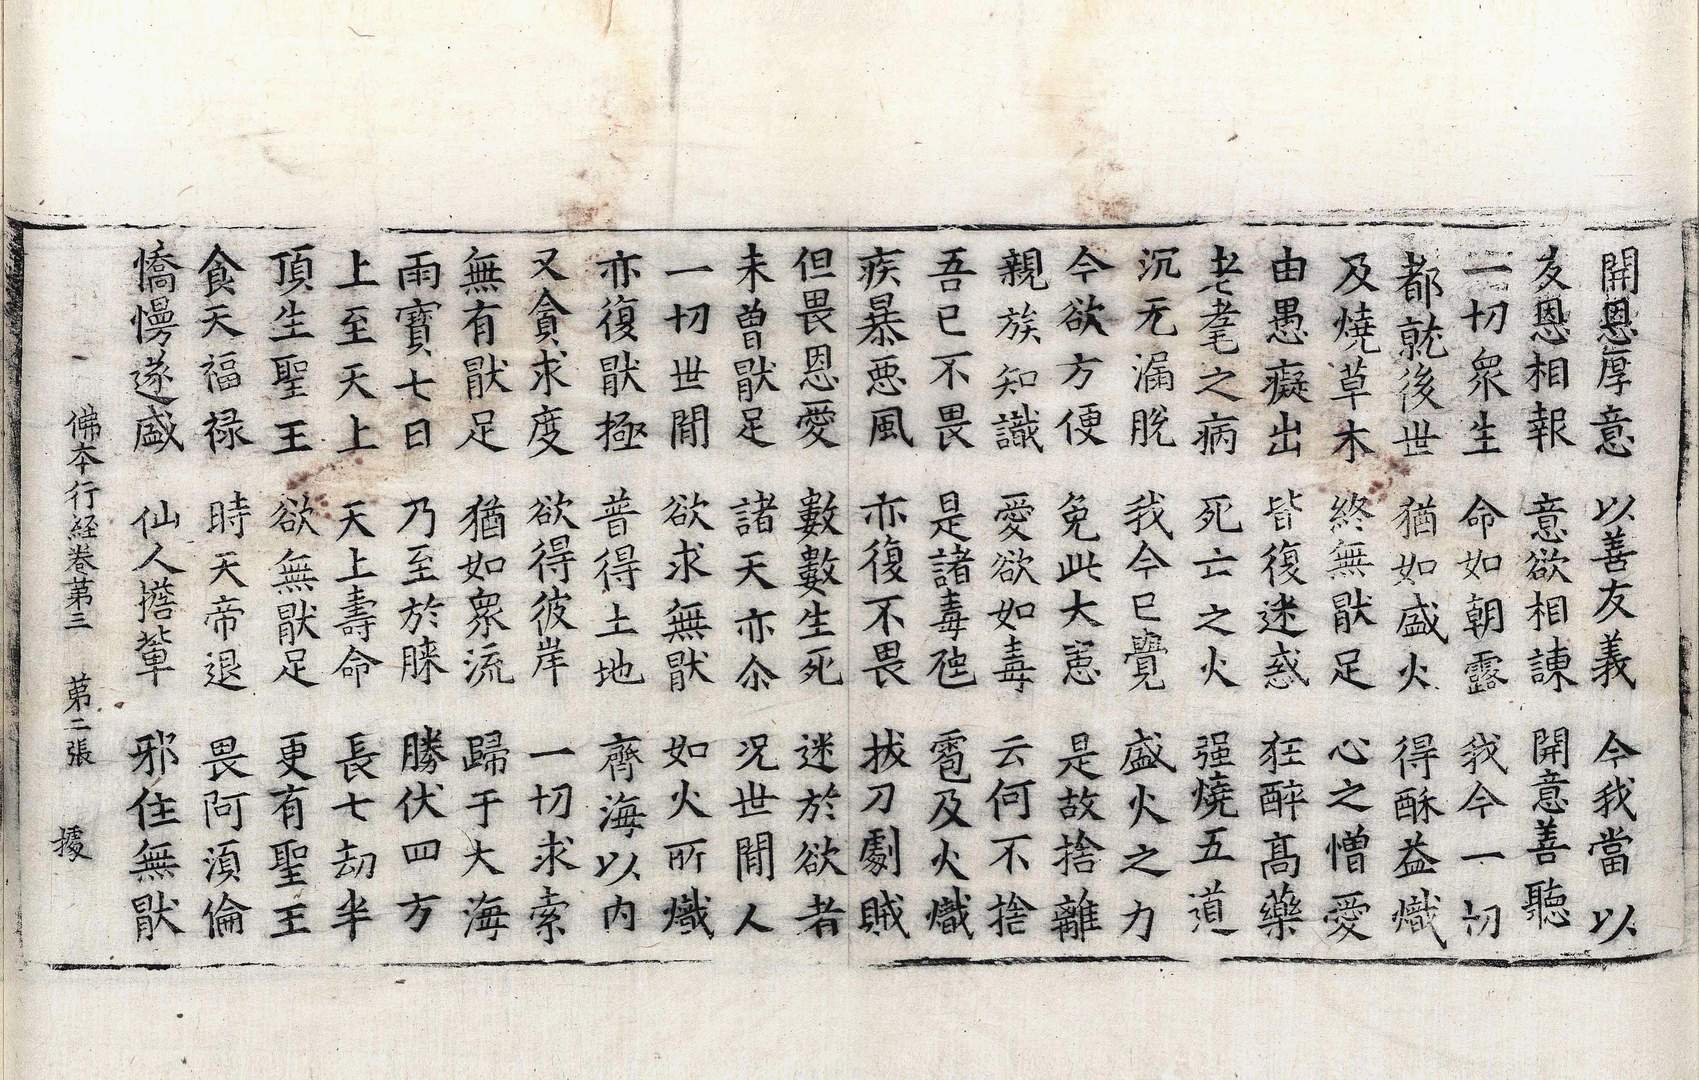 開恩厚意　以善友義　今我當以
友恩相報　意欲相諫　開意善聽
一切衆生　命如朝露　我今一切
都就後世　猶如盛火　得酥益熾
及燒草木　終無猒足　心之憎愛
由愚癡出　皆復迷惑　狂醉髙藥
老耄之病　死亡之火　强燒五道
沉无漏脫　我今已覺　盛火之力
今欲方便　免此大𢙣　是故捨離
親族知識　愛欲如毒　云何不捨
吾已不畏　是諸毒虵　雹及火熾
疾暴惡風　亦復不畏　拔刀劇賊
但畏恩愛　數數生死　迷於欲者
未曽猒足　諸天亦尒　况世閒人
一切世閒　欲求無猒　如火所熾
亦復猒極　普得土地　齊海以內
又貪求度　欲得彼岸　一切求索
無有猒足　猶如衆流　歸于大海
雨寶七日　乃至於膝　勝伏四方
上至天上　天上壽命　長七劫半
頂生聖王　欲無猒足　更有聖王
食天福禄　時天帝退　畏阿湏倫
憍慢遂盛　仙人擔輦　邪住無猒
佛本行経卷第三　第二張　㩀